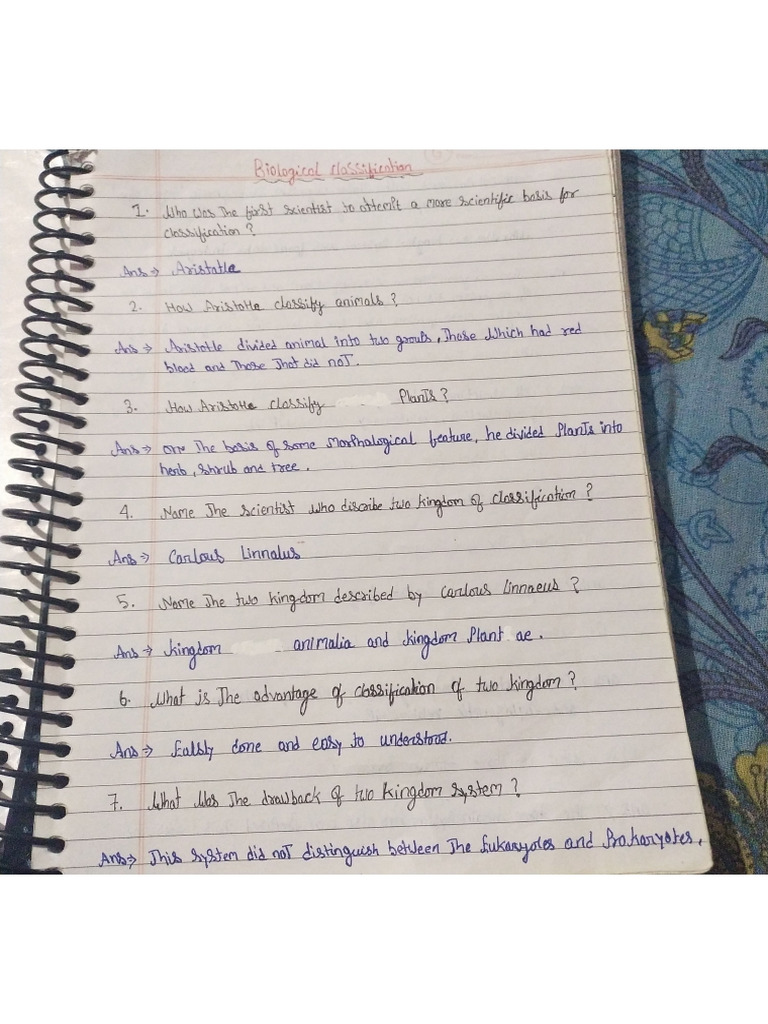 Biological classification
1. Who was The first scientist to attempt a more scientific basis for
classification ?
Ans → Aristotle
2. How Aristotle classify animals ?
Ans → Aristotle divided animal into two groups, Those Which had red
blood and Those That did not.
3. How Aristotle classify Plants ?
Ans → one The basis of some morphalogical feature, he divided Plants into
herb, shrub and tree.
4. Name The scientist who discribe two kingdom of classification ?
Ans → Carlous Linnalus
5. Name The two kingdom described by Carlous Linnaeus ?
Ans → kingdom animalia and kingdom Plant ae.
6. What is The advantage of classification of two kingdom ?
Ans → done and easy to understood.
7. What Was The drawback of two kingdom system ?
Ans → This system did not distinguish between The Eukaryotes and Prokaryotes.